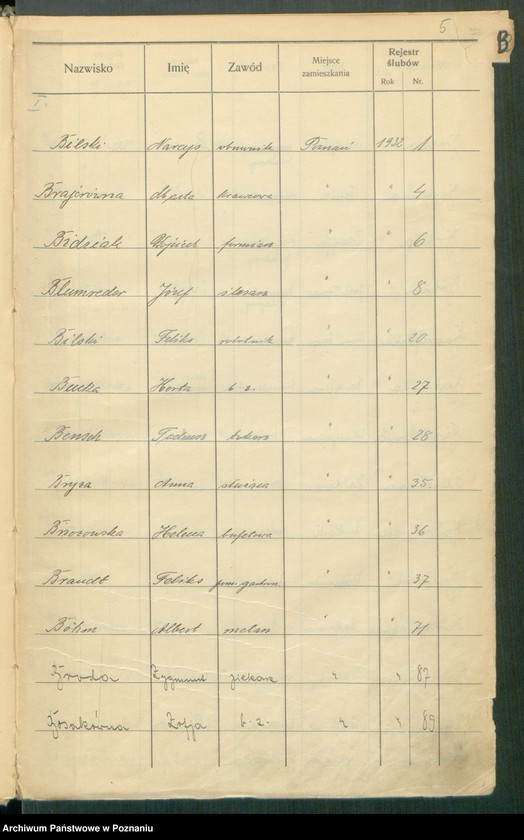 5
B
Nazwisko Imię Zawód Miejsce zamieszkania Rejestr ślubów
Rok Nr.
I.
Bilski Narcyz Poznań 1932 1
Brajerówna krawcowa " " 4
Bidziak Wojciech " " 6
Blumreder Józef ślusarz " " 8
Bilski Feliks robotnik " " 20
Bucka Herta b. z. " " 27
Bensch Tadeusz tokarz " " 28
Bryza Anna służąca " " 35.
Brzozowska Helena bufetowa " " 36
Brandt Feliks " " 37
Böhm Albert malarz " " 71
Bryda Zygmunt piekarz " " 87
Zofja b. z. " " 89
Archiwum Państwowe w Poznaniu